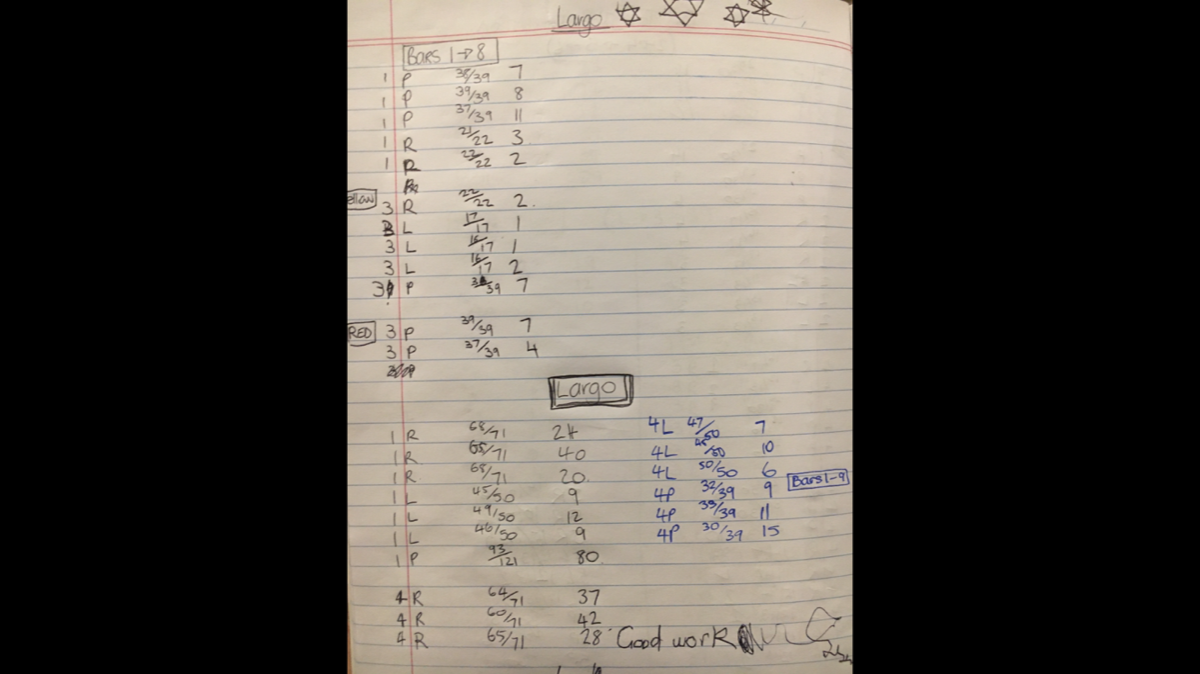 Largo
Bars 1→8
1 P 38/39 7
1 P 39/39 8
1 P 37/39 11
1 R 21/22 3
1 R 22/22 2
ellow
3 R 22/22 2.
3 L 17/17 1
3 L 16/17 1
3 L 16/17 2
3 P /39 7
RED 3 P 39/39 7
3 P 37/39 4
Largo
1 R 68/71 24
1 R 65/71 40
1 R 68/71 20
1 L 45/50 9
1 L 49/50 12
1 L 46/50 9
1 P 93/121 80
4 R 64/71 37
4 R 60/71 42
4 R 65/71 28
4L 47/50 7
4L /50 10
4L 50/50 6
4P 32/39 9
4P /39 11
4P 30/39 15
Bars 1-9
Good work